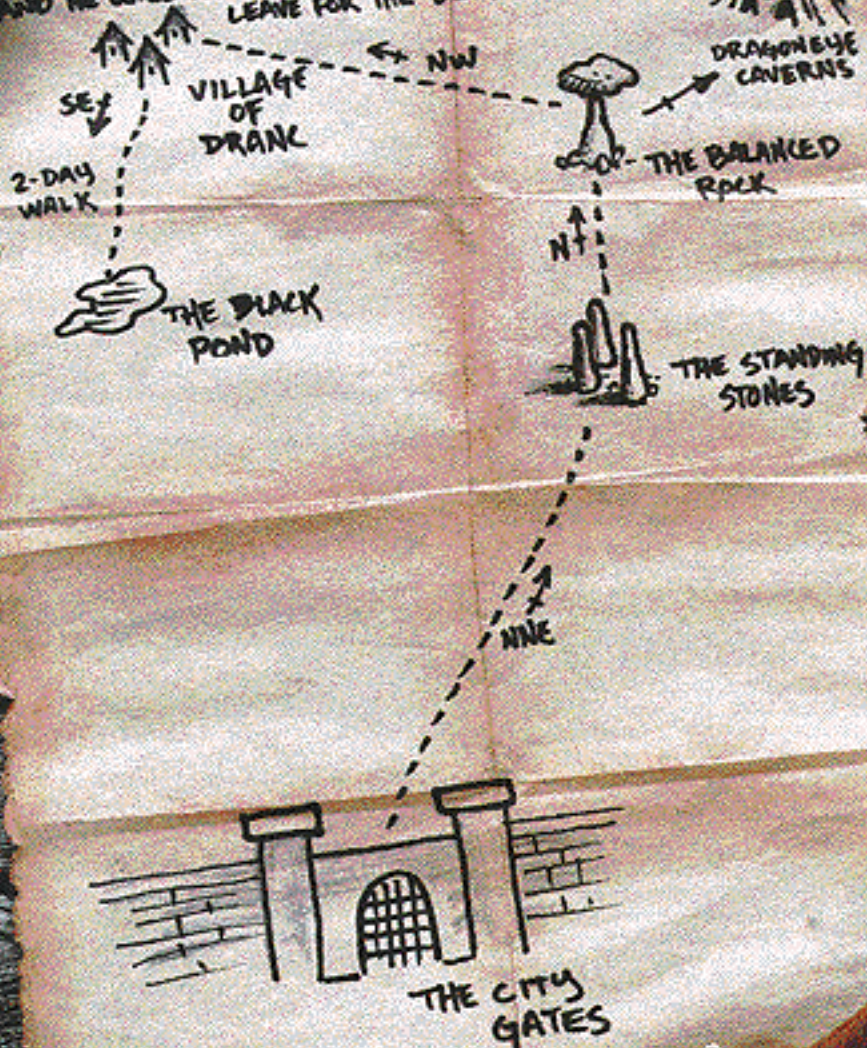 LEAVE FOR THE
NW
DRAGONEYE
CAVERNS
VILLAGE
OF
DRANC
SE
2-DAY
WALK
THE BALANCED
ROCK
N
THE BLACK
POND
THE STANDING
STONES
NNE
THE CITY
GATES